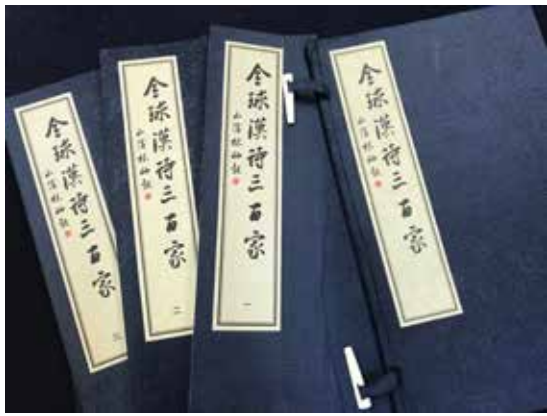 全球漢詩三百家
三
全球漢詩三百家
二
全球漢詩三百家
一
全球漢詩三百家